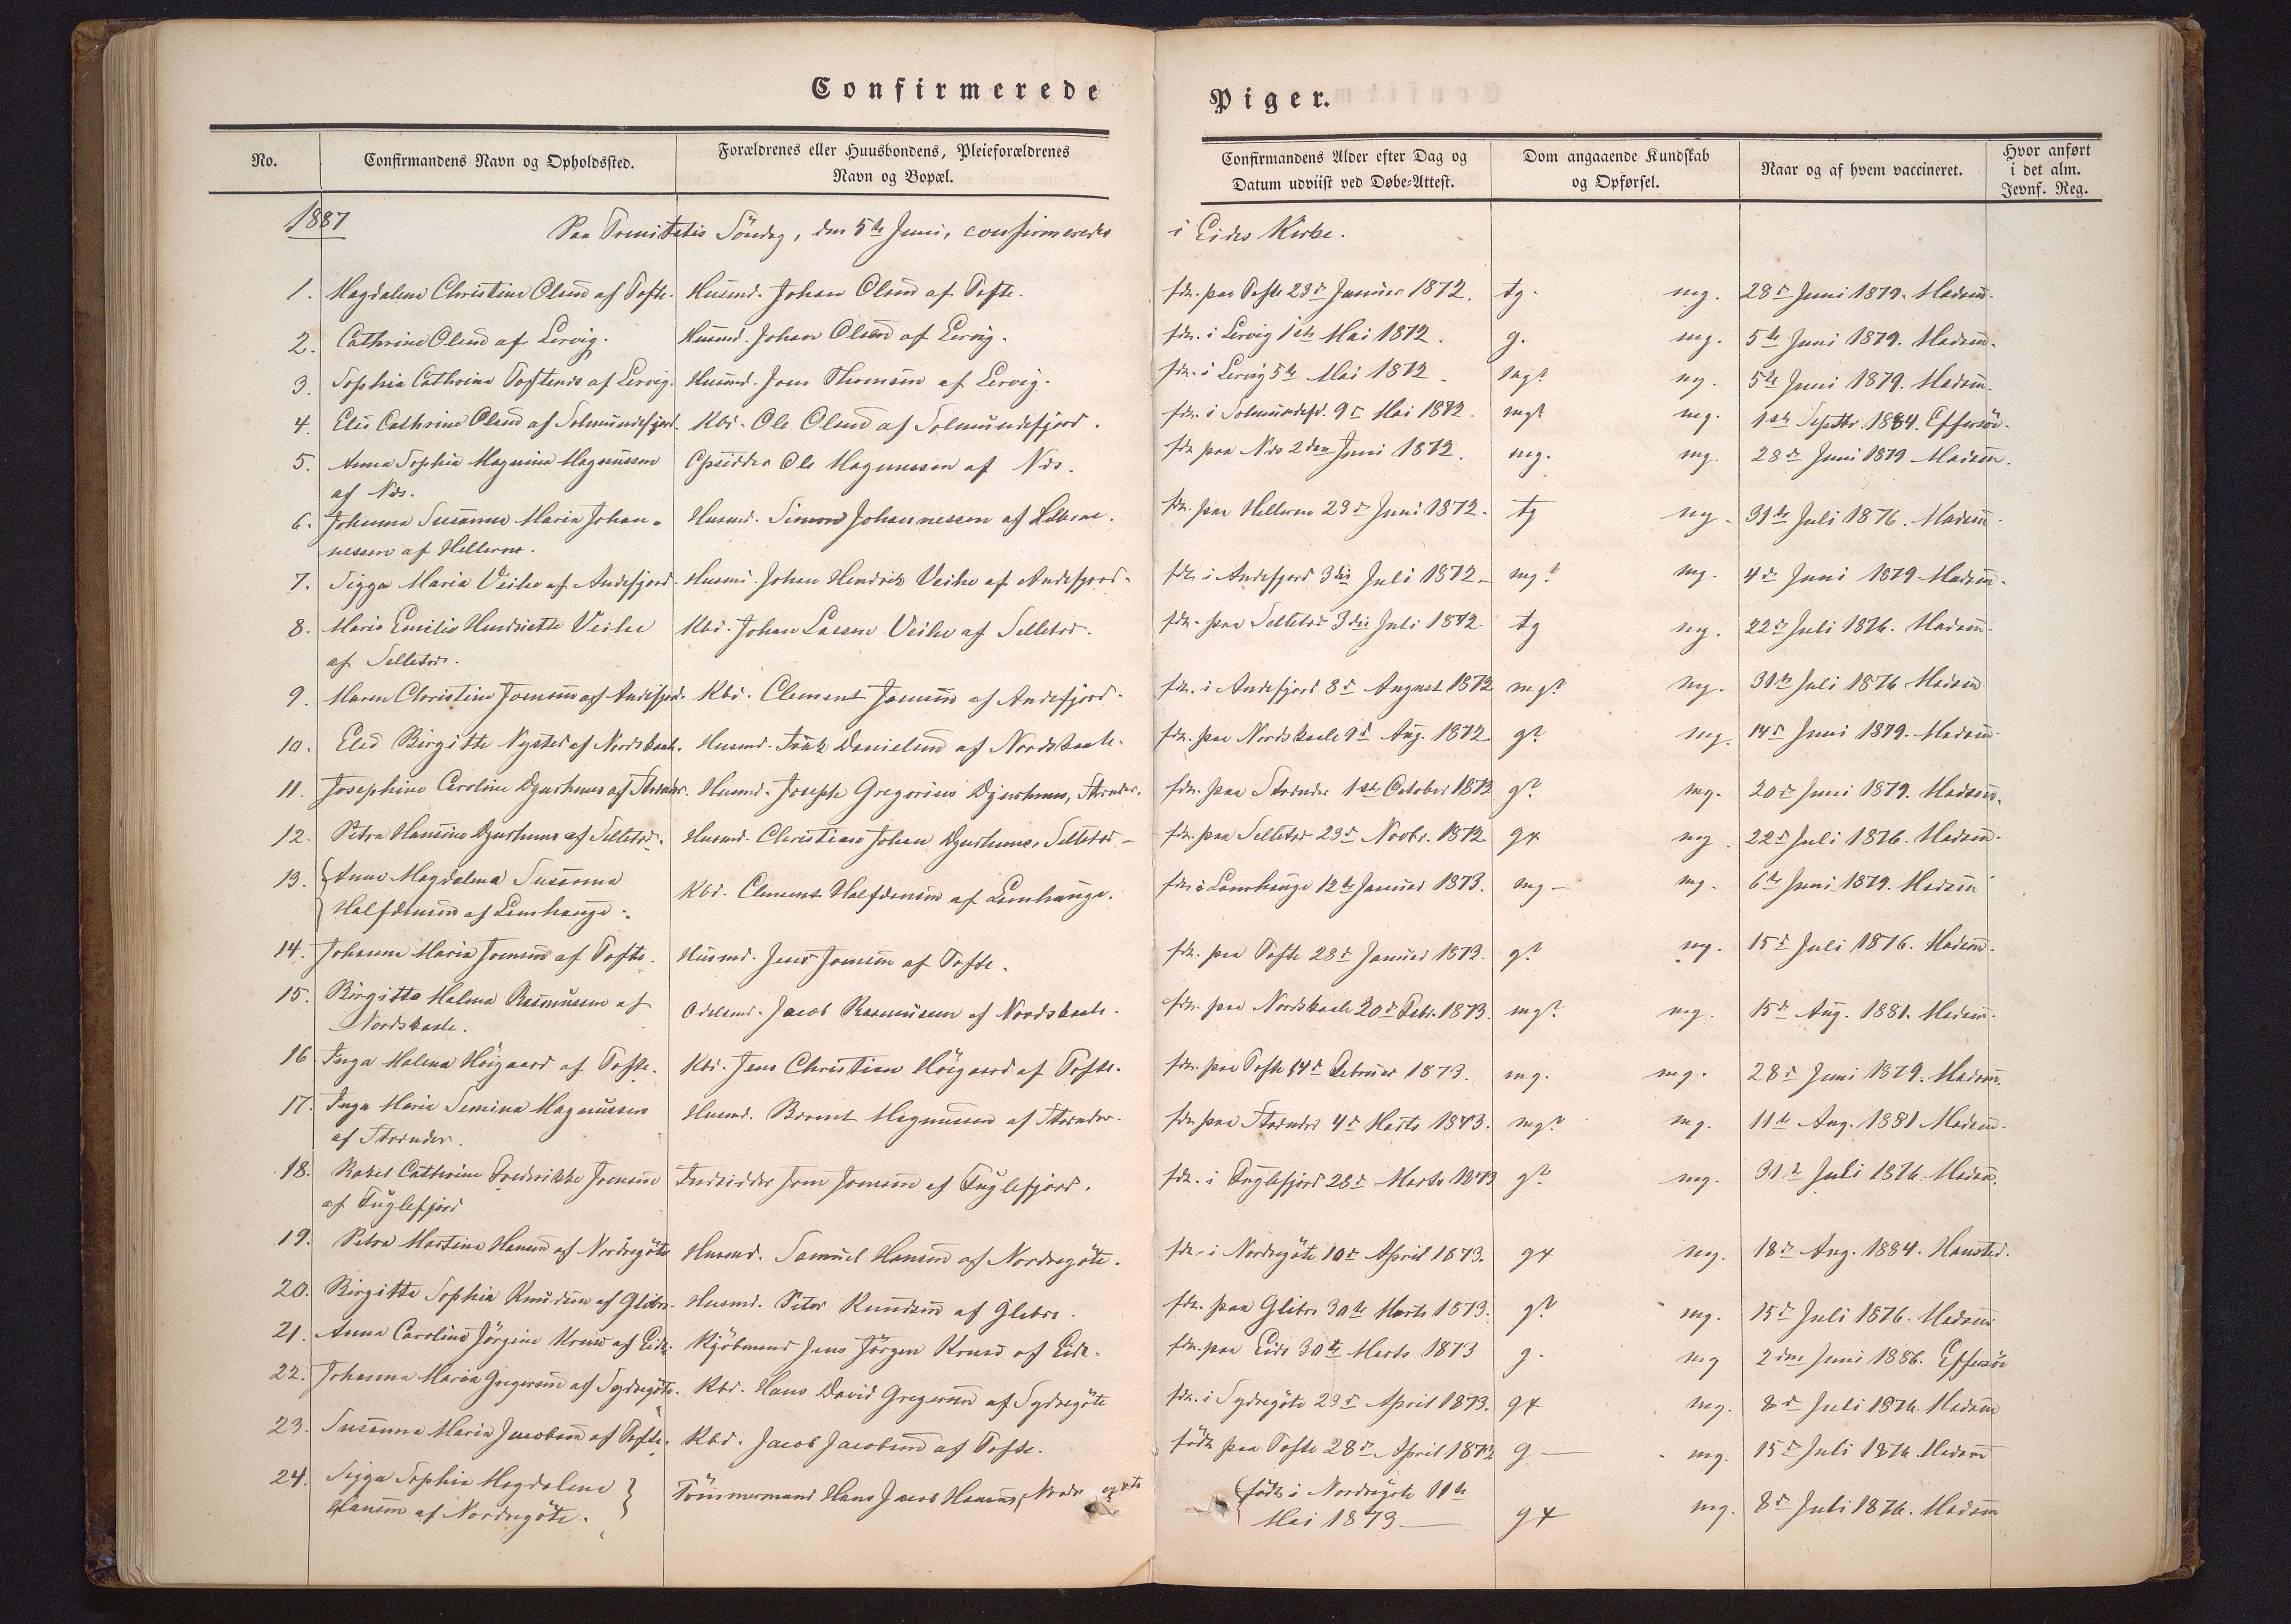 Confirmerede Piger.
No. Confirmandens Navn og Opholdssted. Forældrenes eller Huusbondens, Pleieforældrenes Navn og Bopæl. Confirmandens Alder efter Dag og Datum udviist ved Døbe-Attest. Dom angaaende Kundskab og Opførsel. Naar og af hvem vaccineret. Hvor anført i det alm. Jevnf. Reg.
1887 Paa Trenitatis Söndag, den 5te Juni, confirmeredes i Eides Kirke.
1. Magdalene Christine Olsen af Tofte. Husmd. Johan Olsen af Tofte. fdt. paa Tofte 23de Januar 1872. tg. mg. 28de Juni 1879. Madsen.
2. Cathrine Olsen af Lervig. Husmd. Johan Olsen af Lervig. fdt. i Lervig 1ste Mai 1872. g. mg. 5te Juni 1879. Madsen.
3. Sophia Cathrine af Lervig. Husmd. Joen Thomsen af Lervig. fdt. i Lervig 5te Mai 1872. mg? mg. 5te Juni 1879. Madsen.
4. Else Cathrine Olsen af Solmundefjord. Kbd. Ole Olsen af Solmundefjord. fdt. i Solmundefd. 9de Mai 1872. mg? mg. 1ste Septbr. 1884. Effersöe.
5. Anna Sophia Magnine Magnussen Opsidder Ole Magnussen af Næs. fdt. paa Næs 2den Juni 1872. mg. mg. 28de Juni 1879 Madsen.
af Næs.
6. Johanna Susanna Maria Johan- Husmd. Simon Johannessen af Hellerne. fdt. paa Hellerne 23de Juni 1872. tg mg. 31te Juli 1876. Madsen.
nessen af Hellerne.
7. Sigga Maria Veihe af Andefjord. Husmd. Johan Hendrik Veihe af Andefjord. fdt. i Andefjord 3die Juli 1872. mg? mg. 4de Juni 1879 Madsen.
8. Maria Emilie Hendriette Veihe Kbd. Johan Lassen Veihe af Selletræ. fdt. paa Selletræ 3die Juli 1872 tg mg. 22de Juli 1876. Madsen.
af Selletræ.
9. Maren Christine Joensen af Andefjord. Kbd. Clement Joensen af Andefjord. fdt. i Andefjord 8de August 1872 mg? mg. 31te Juli 1876 Madsen
10. Else Birgitte Nysted af Nordskaale. Husmd. Danielsen af Nordskaale. fdt. paa Nordskaale 9de Aug. 1872 g? mg. 14de Juni 1879. Madsen.
11. Josephine Caroline Djurhuus af Strænder. Husmd. Joseph Gregorius Djurhuus, Strænder. fdt. paa Strænder 1ste October 1872 g? mg. 20de Juni 1879. Madsen.
12. Petra Hansine Djurhuus af Selletræ. Husmd. Christian Johan Djurhuus, Selletræ. fdt. paa Selletræ 23de Novbr. 1872 g+ mg. 22de Juli 1876. Madsen.
13. Anne Magdalena Susanna Kbd. Clement Halfdensen af Lamhauge. fdt. i Lamhauge 12te Januar 1873. mg mg. 6te Juni 1879. Madsen
Halfdensen af Lamhauge.
14. Johanne Maria Joensen af Tofte. Husmd. Jens Joensen af Tofte. fdt. paa Tofte 28de Januar 1873. g? mg. 15de Juli 1876. Madsen.
15. Birgitte Malena Rasmussen af Odelsmd. Jacob Rasmussen af Nordskaale. fdt. paa Nordskaale 20de Febr. 1873. mg? mg. 15de Aug. 1881. Madsen.
Nordskaale.
16 Inga Malena Höigaard af Tofte. Kbd. Jens Christian Höigaard af Tofte. fdt. paa Tofte 14de Februar 1873. mg. mg. 28de Juni 1879. Madsen.
17. Inga Maria Semina Magnussen Husmd. Berent Magnussen af Strænder. fdt. paa Strænder 4de Marts 1873. mg? mg. 11te Aug. 1881 Madsen.
af Strænder.
18. Rakel Catherine Fredrikke Joensen Indsidder Joen Joensen af Fuglefjord. fdt. i Fuglefjord 28de Marts 1873 g? mg. 31te Juli 1876. Madsen.
af Fuglefjord
19. Petra Martine Hansen af Nordregöte Husmd. Samuel Hansen af Nordregöte. fdt. i Nordregöte 10de April 1873. g+ mg. 18de Aug. 1884. Hansted.
20. Birgitte Sophia Knudsen af Glibre. Husmd. Peter Knudsen af Glibre. fdt. paa Glibre 30te Marts 1873. g? mg. 15de Juli 1876. Madsen
21. Anna Caroline Jörgine Kruse af Eide. Kjöbmand Jens Jörgen Kruse af Eide. fdt. paa Eide 30te Marts 1873 g. mg 2den Juni 1886. Effersöe
22. Johanna Maria Gregersen af Sydregöte. Kbd. Hans David Gregersen af Sydregöte fdt. i Sydregöte 23de April 1873. g+ mg. 8de Juli 1876. Madsen
23. Susanna Maria Jacobsen af Tofte. Kbd. Jacob Jacobsen af Tofte. födt paa Tofte 28de April 1872 g mg. 15de Juli 1876 Madsen
24. Sigga Sophia Magdalene Tömmermand Hans Jacob Hansen, födt i Nordregöte 11te
Hansen af Nordregöte. Mai 1873 g+ mg. 8de Juli 1876. Madsen